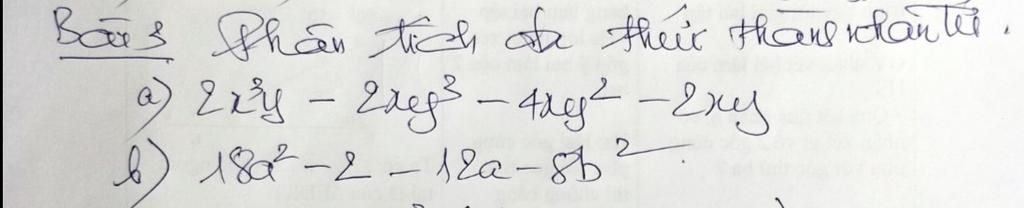 Bài 3 Phân tích đa thức thành nhân tử.
a) 2x³y - 2xy³ - 4xy² - 2xy
b) 18a² - 2 - 12a - 8b²